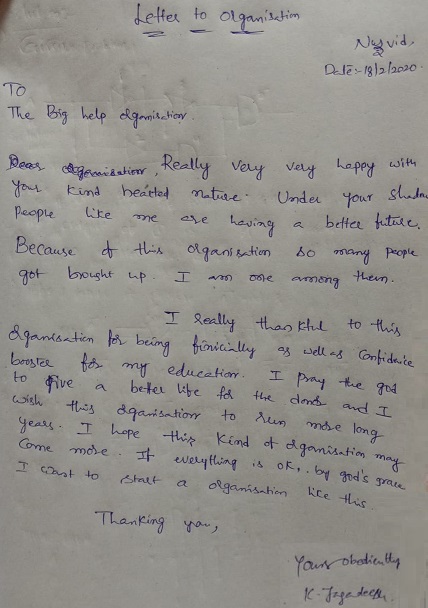 Letter to Organisation
Nuzvid,
Date:- 18/2/2020.
To
The Big help organisation.
Dear organisation, Really very very happy with
your kind hearted nature. Under your Shadow
People like me are having a better future.
Because of this organisation so many people
got brought up. I am one among them.
I really thankful to this
organisation for being finicially as well as confidence
booster for my education. I pray the god
to give a better life for the donor and I
wish this organisation to run more long
years. I hope this kind of organisation may
come more. If everything is ok, by god's grace
I want to start a organisation like this.
Thanking you,
Yours obediently
K. Jagadeesh.